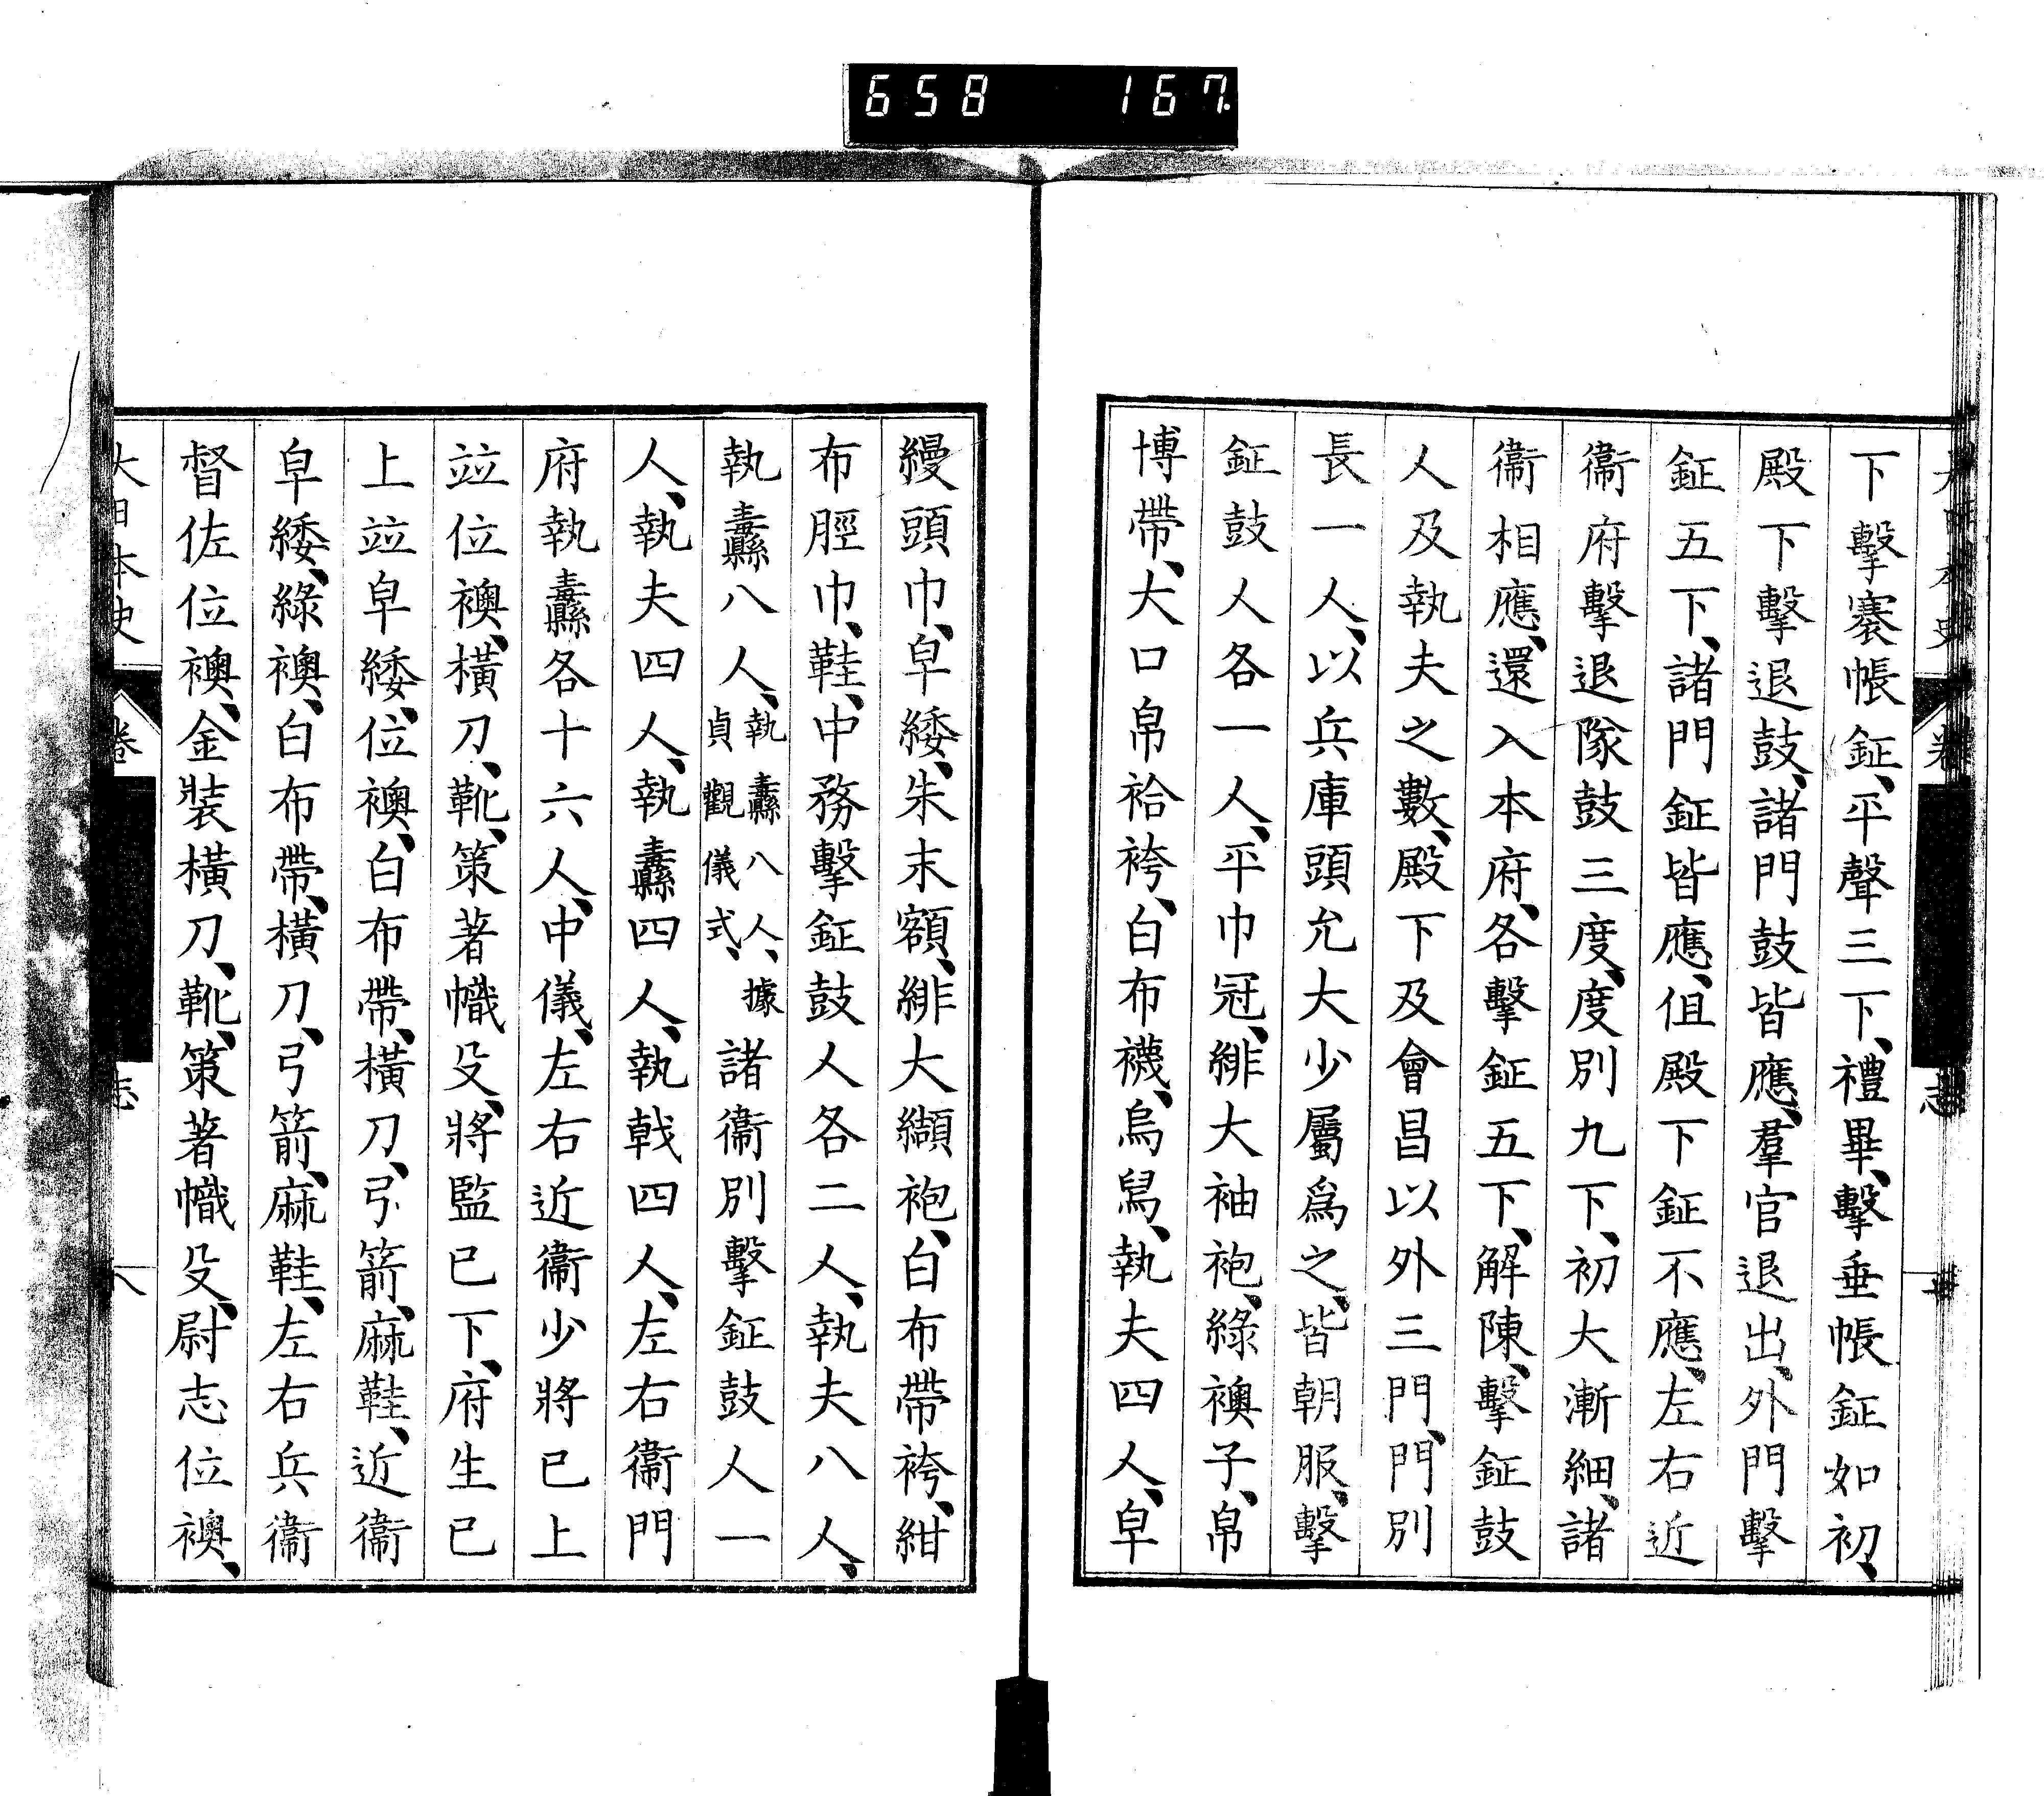 658 167
下擊褰帳鉦、平聲三下、禮畢、擊垂帳鉦如初、
殿下擊退鼓、諸門鼓皆應、羣官退出、外門擊
鉦五下、諸門鉦皆應、但殿下鉦不應、左右近
衞府擊退隊鼓三度、度別九下、初大漸細、諸
衞相應、還入本府、各擊鉦五下、解陳、擊鉦鼓
人及執夫之數、殿下及會昌以外三門、門別
長一人、以兵庫頭允大少屬爲之、皆朝服、擊
鉦鼓人各一人、平巾冠、緋大袖袍、綠襖子、帛
博帶、大口帛袷袴、白布襪、烏舄、執夫四人、皁
縵頭巾、皁緌、朱末額、緋大纈袍、白布帶袴、紺
布脛巾、鞋、中務擊鉦鼓人各二人、執夫八人、
執纛八人、執纛八人、據貞觀儀式、諸衞別擊鉦鼓人一
人、執夫四人、執纛四人、執戟四人、左右衞門
府執纛各十六人、中儀、左右近衞少將已上
竝位襖、橫刀、靴、策著幟殳、將監已下、府生已
上竝皁緌、位襖、白布帶、橫刀、弓箭、麻鞋、近衞
皁緌、綠襖、白布帶、橫刀、弓箭、麻鞋、左右兵衞
督佐位襖、金裝橫刀、靴、策著幟殳、尉志位襖、
大日本史 卷 志 八